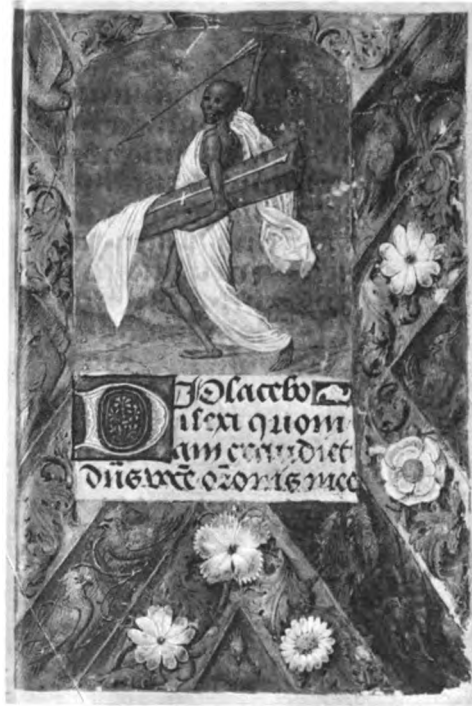 Placebo
Dilexi quoni
am exaudiet
dn̄s vocē orōnis mee